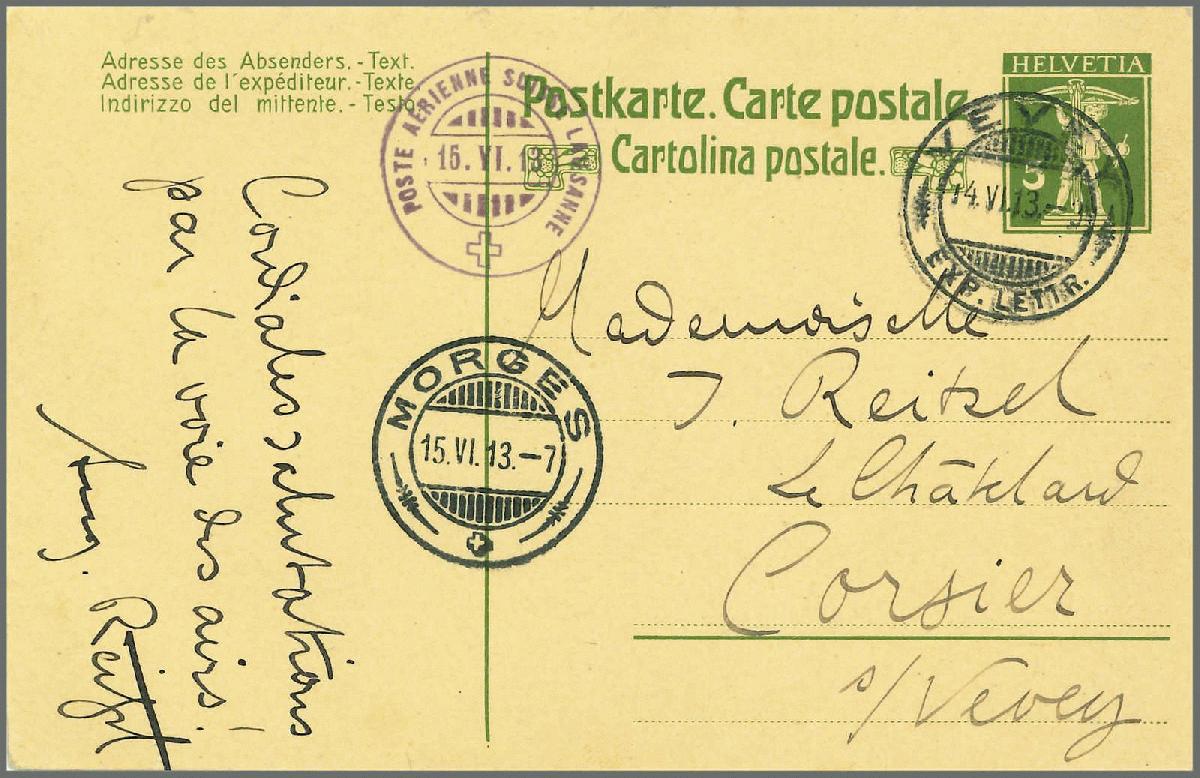 Adresse des Absenders.-Text.
Adresse de l'expéditeur.-Texte.
Indirizzo del mittente.-Testo.
Postkarte. Carte postale.
Cartolina postale.
HELVETIA
5
POSTE AÉRIENNE SUISSE LAUSANNE
15. VI. 13
VEVEY
14.VI.13.-
EXP. LETTR.
MORGES
15.VI.13.-7
Cordiales salutations
par la voie des airs!
Reitzel
Mademoiselle
J. Reitzel
Le Châtelard
Corsier
s/Vevey